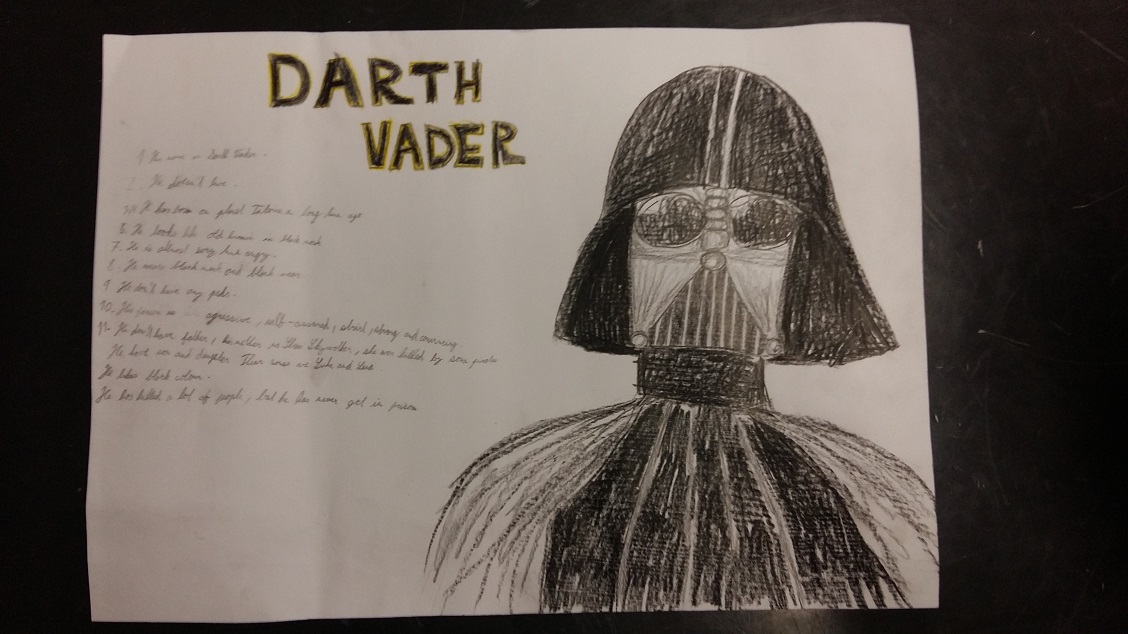 DARTH
VADER
1. He name is Darth Vader.
2. He doesn't have.
He has born on planet Tatooine long time ago
6. He looks like old human in black mask
7. He is almost sorry and angry.
8. He wears black mask and black
9. He don't have any pets.
10. His person is agressive, self-assured, strict, strong and
11. He don't have father, his mother is Skywalker, she was killed by some people
He have son and daughter. Their names are Luke and Leia
He likes black colour.
He has killed a lot of people, but he has never get in prison